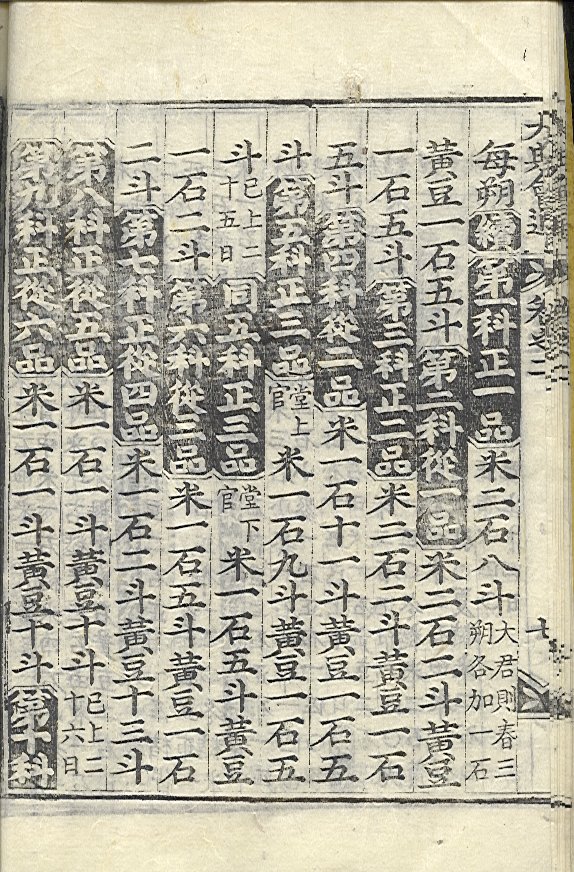 大典會通 卷之二
每朔續第一科正一品米二石八斗大君則春三朔各加一石
黃豆一石五斗第二科從一品米二石二斗黃豆
一石五斗第三科正二品米二石二斗黃豆一石
五斗第四科從二品米一石十一斗黃豆一石五
斗第五科正三品堂上官米一石九斗黃豆一石五
斗已上二十五日同五科正三品堂下官米一石五斗黃豆
一石二斗第六科從三品米一石五斗黃豆一石
二斗第七科正從四品米一石二斗黃豆十三斗
第八科正從五品米一石一斗黃豆十斗已上二十六日
第九科正從六品米一石一斗黃豆十斗第十科